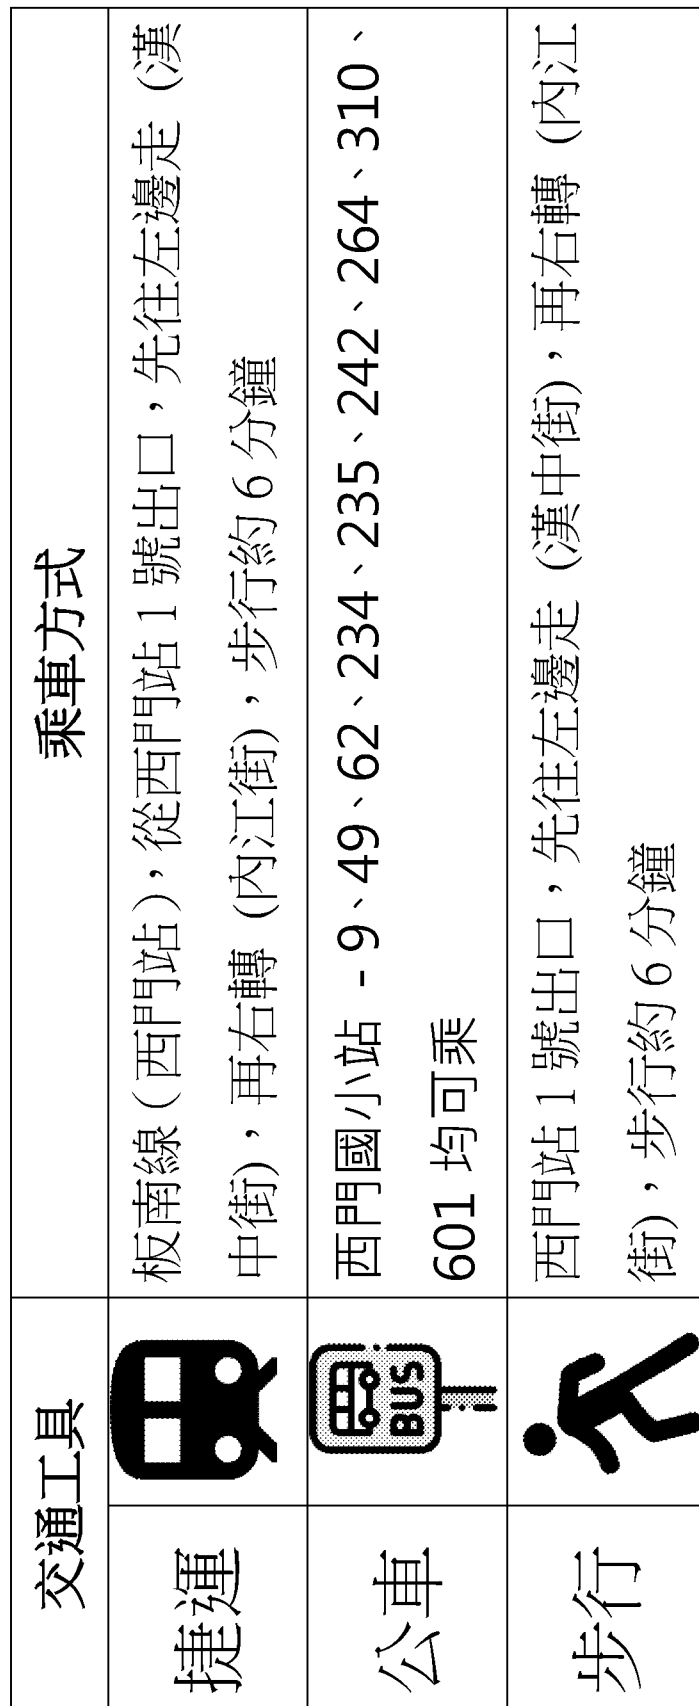 交通工具
乘車方式
捷運
板南線（西門站），從西門站 1 號出口，先往左邊走 (漢
中街)，再右轉 (內江街)，步行約 6 分鐘
公車
BUS
西門國小站 - 9、49、62、234、235、242、264、310、
601 均可乘
步行
西門站 1 號出口，先往左邊走 (漢中街)，再右轉 (內江
街)，步行約 6 分鐘